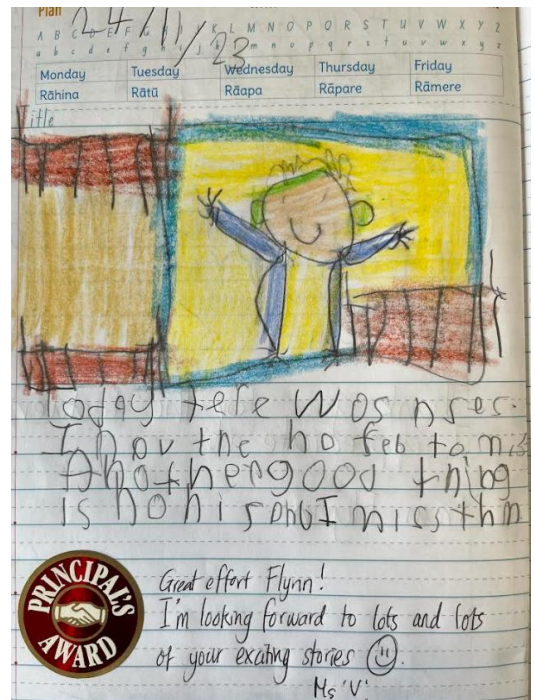 Plan
24/11/23
A B C D E F G H I J K L M N O P Q R S T U V W X Y Z
a b c d e f g h i j k l m n o p q r s t u v w x y z
Monday Tuesday Wednesday Thursday Friday
Rāhina Rātū Rāapa Rāpare Rāmere
Title
today tere Wos nses.
I the ho feb to mis
Anothergood thing
is no I miss thm
PRINCIPAL'S AWARD
Great effort Flynn!
I'm looking forward to lots and lots
of your exciting stories
Ms 'V'